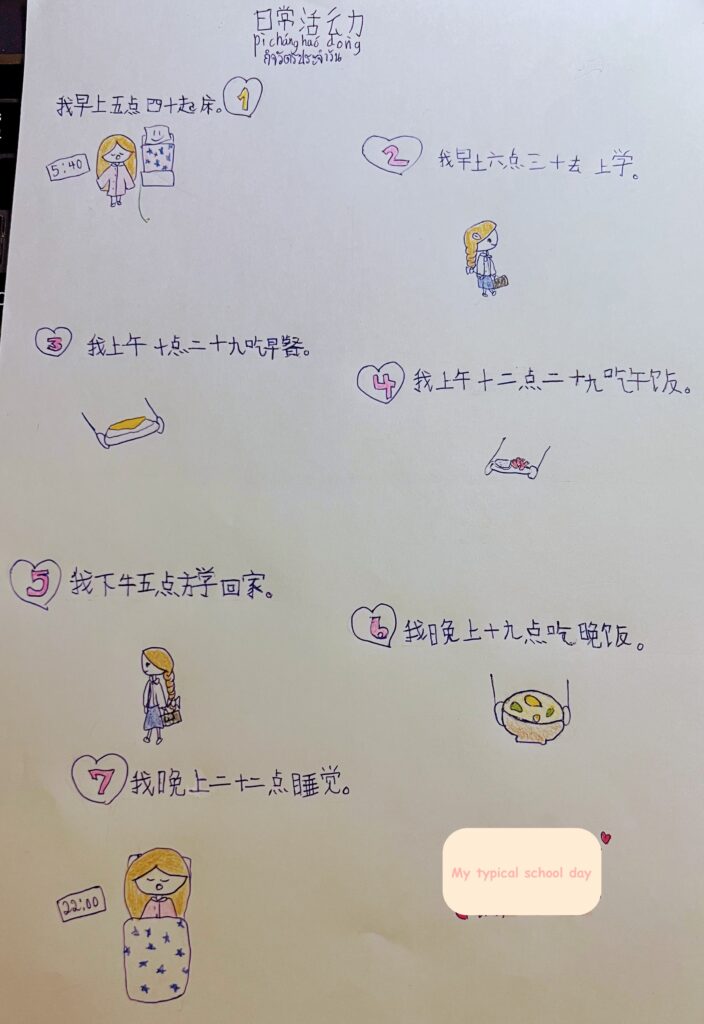 日常活动
pì cháng huó dòng
กิจวัตรประจำวัน
我早上五点四十起床。 1
5:40
2 我早上六点三十去上学。
3 我上午十点二十九吃早餐。
4 我上午十二点二十九吃午饭。
5 我下牛五点放学回家。
6 我晚上十九点吃晚饭。
7 我晚上二十二点睡觉。
22:00
My typical school day